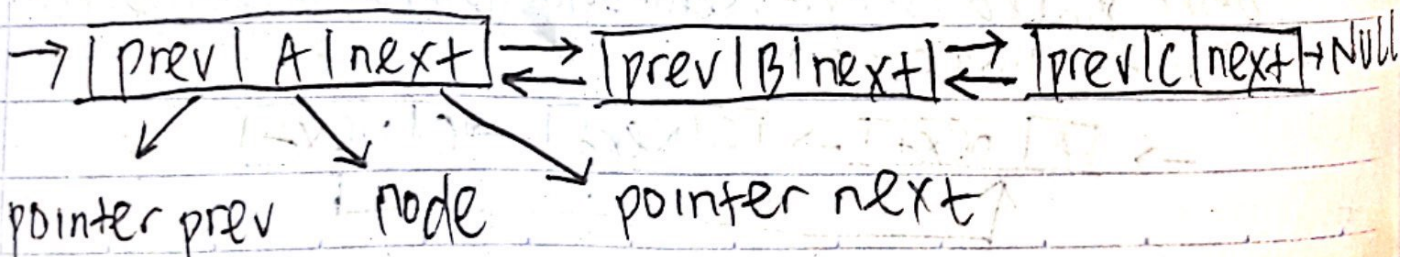 → | prev | A | next | ⇄ | prev | B | next | ⇄ | prev | C | next | → NULL
pointer prev node pointer next